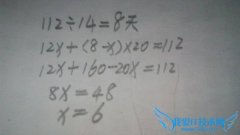 112÷14=8天
12x+(8-x)×20=112
12x+160-20x=112
8x=48
x=6